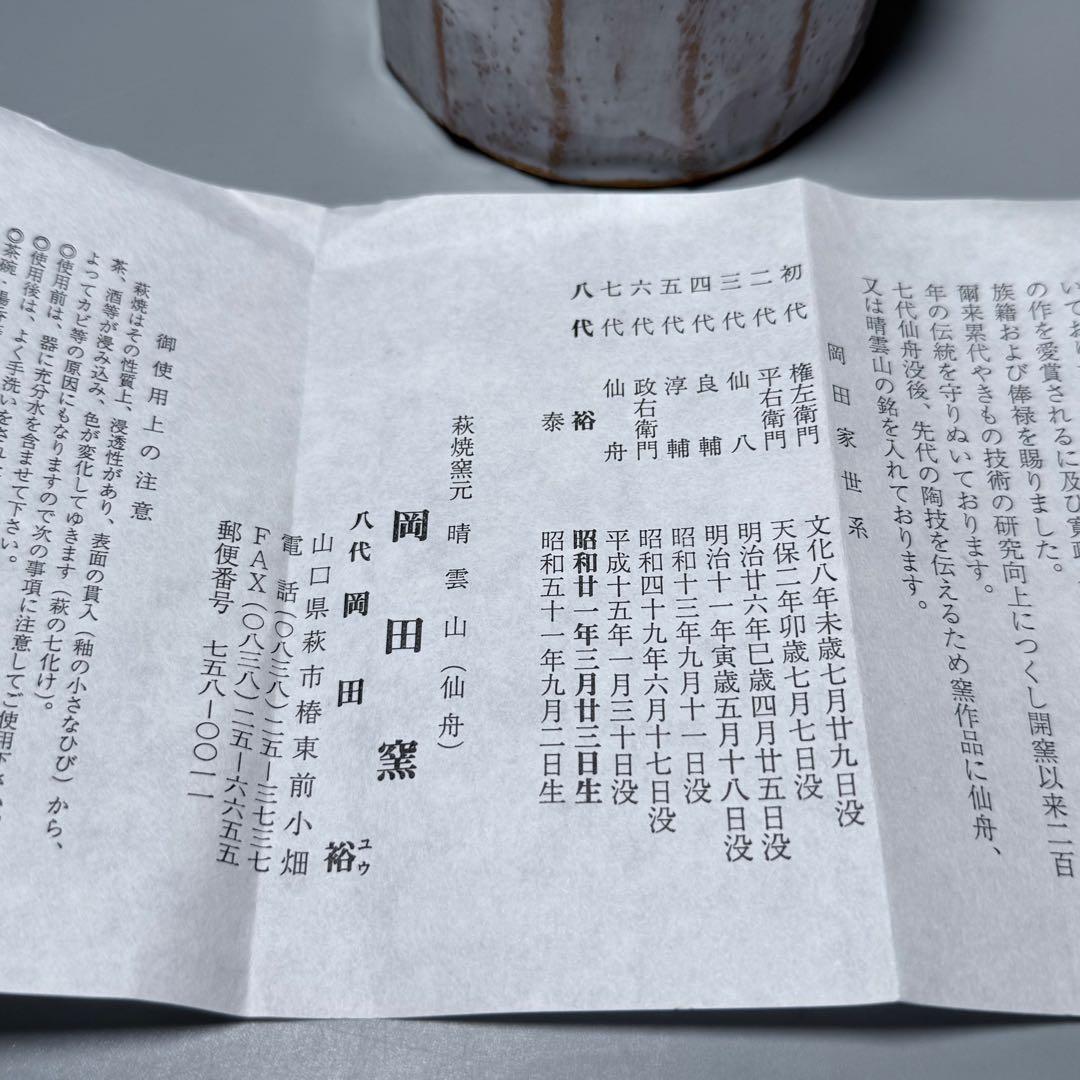 の作を愛賞されるに及び寛政
族籍および俸禄を賜りました。
爾来累代やきもの技術の研究向上につくし開窯以来二百
年の伝統を守りぬいております。
七代仙舟没後、先代の陶技を伝えるため窯作品に仙舟、
又は晴雲山の銘を入れております。
岡田家世系
初代 権左衛門 文化八年未歳七月廿九日没
二代 平右衛門 天保二年卯歳七月七日没
三代 仙八 明治廿六年巳歳四月廿五日没
四代 良輔 明治十一年寅歳五月十八日没
五代 淳輔 昭和十三年九月十一日没
六代 政右衛門 昭和四十九年六月十七日没
七代 仙舟 平成十五年一月三十日没
八代 裕 昭和廿一年三月廿三日生
泰 昭和五十一年九月二日生
萩焼窯元 晴雲山(仙舟)
岡田窯
八代 岡田 裕 ユウ
山口県萩市椿東前小畑
電話(〇八三八)二五ー三七三七
FAX(〇八三八)二五ー六六五五
郵便番号 七五八ー〇〇一一
御使用上の注意
萩焼はその性質上、浸透性があり、表面の貫入(釉の小さなひび)から、
茶、酒等が浸み込み、色が変化してゆきます(萩の七化け)。
よってカビ等の原因にもなりますので次の事項に注意してご使用下さい。
◎使用前は、器に充分水を含ませて下さい。
◎使用後は、よく手洗いをされ